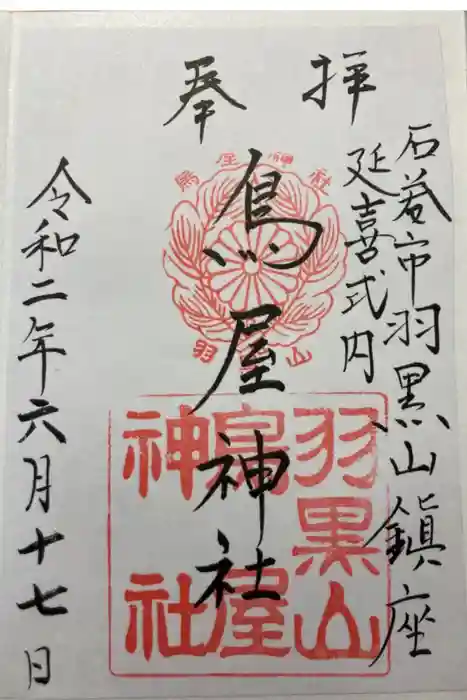 奉拝
石巻市羽黒山鎮座
延喜式内
鳥屋神社
令和二年六月十七日
鳥屋神社
羽山
羽黒山
鳥屋
神社